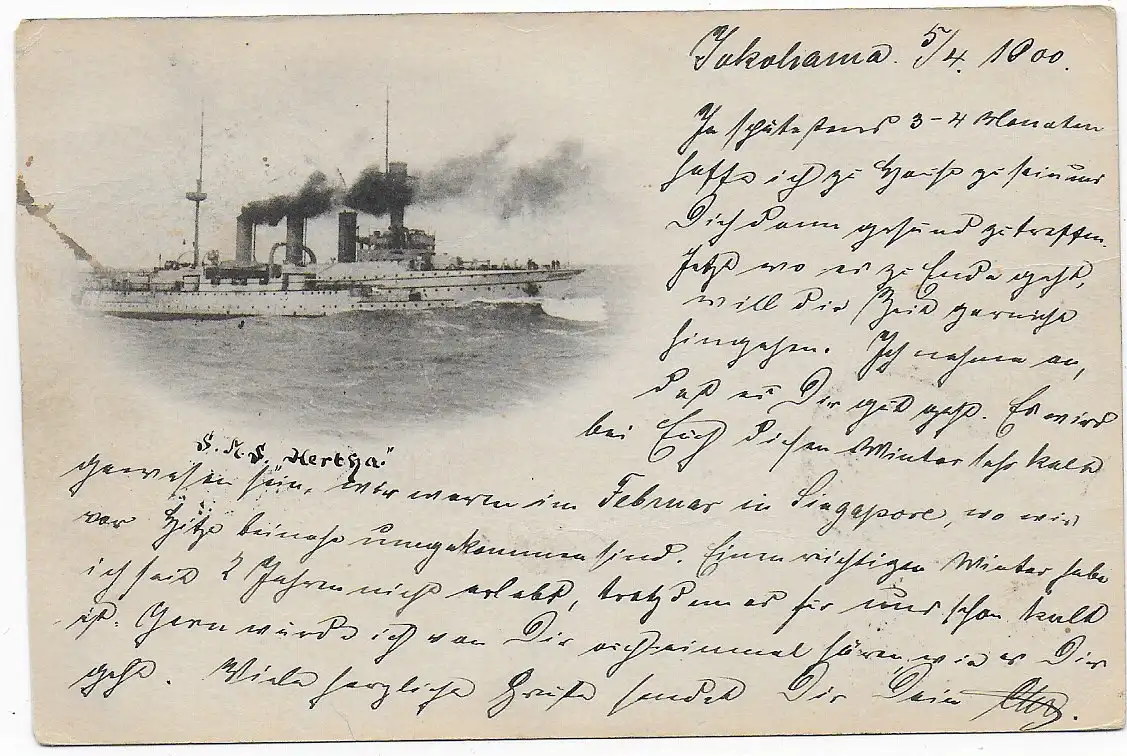 Yokohama. 5/4. 1900.
In spätestens 3-4 Monaten
hoffe ich zu Hause zu sein und
Dich dann gesund zu treffen.
Jetzt wo es zu Ende geht,
will die Zeit garnicht
hingehen. Ich nehme an,
daß es Dir gut geht. Es wird
bei Euch diesen Winter sehr kalt
S.M.S. „Hertha"
gewesen sein, wir waren im Februar in Singapore, wo wir
vor Hitze beinahe umgekommen sind. Einen richtigen Winter habe
ich seit 2 Jahren nicht erlebt, trotzdem es für uns schon kalt
ist. Gern würde ich von Dir auch einmal hören wie es Dir
geht. Viele herzliche Grüße sendet Dir Dein